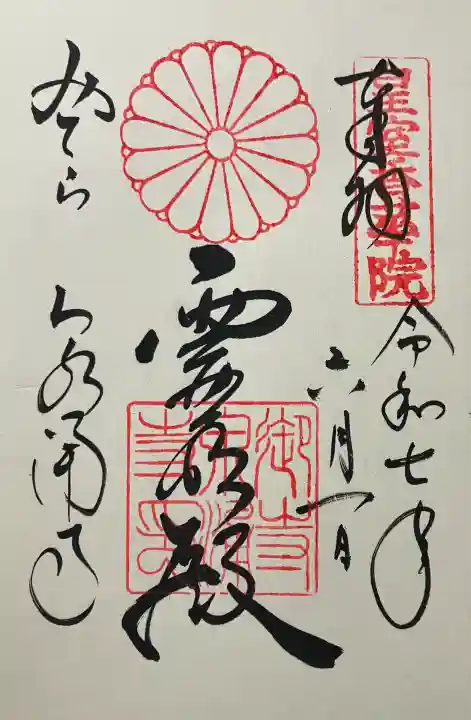 皇室香華院
奉拝
令和七年
六月一日
霊明殿
御寺
泉涌
みてら
泉涌寺